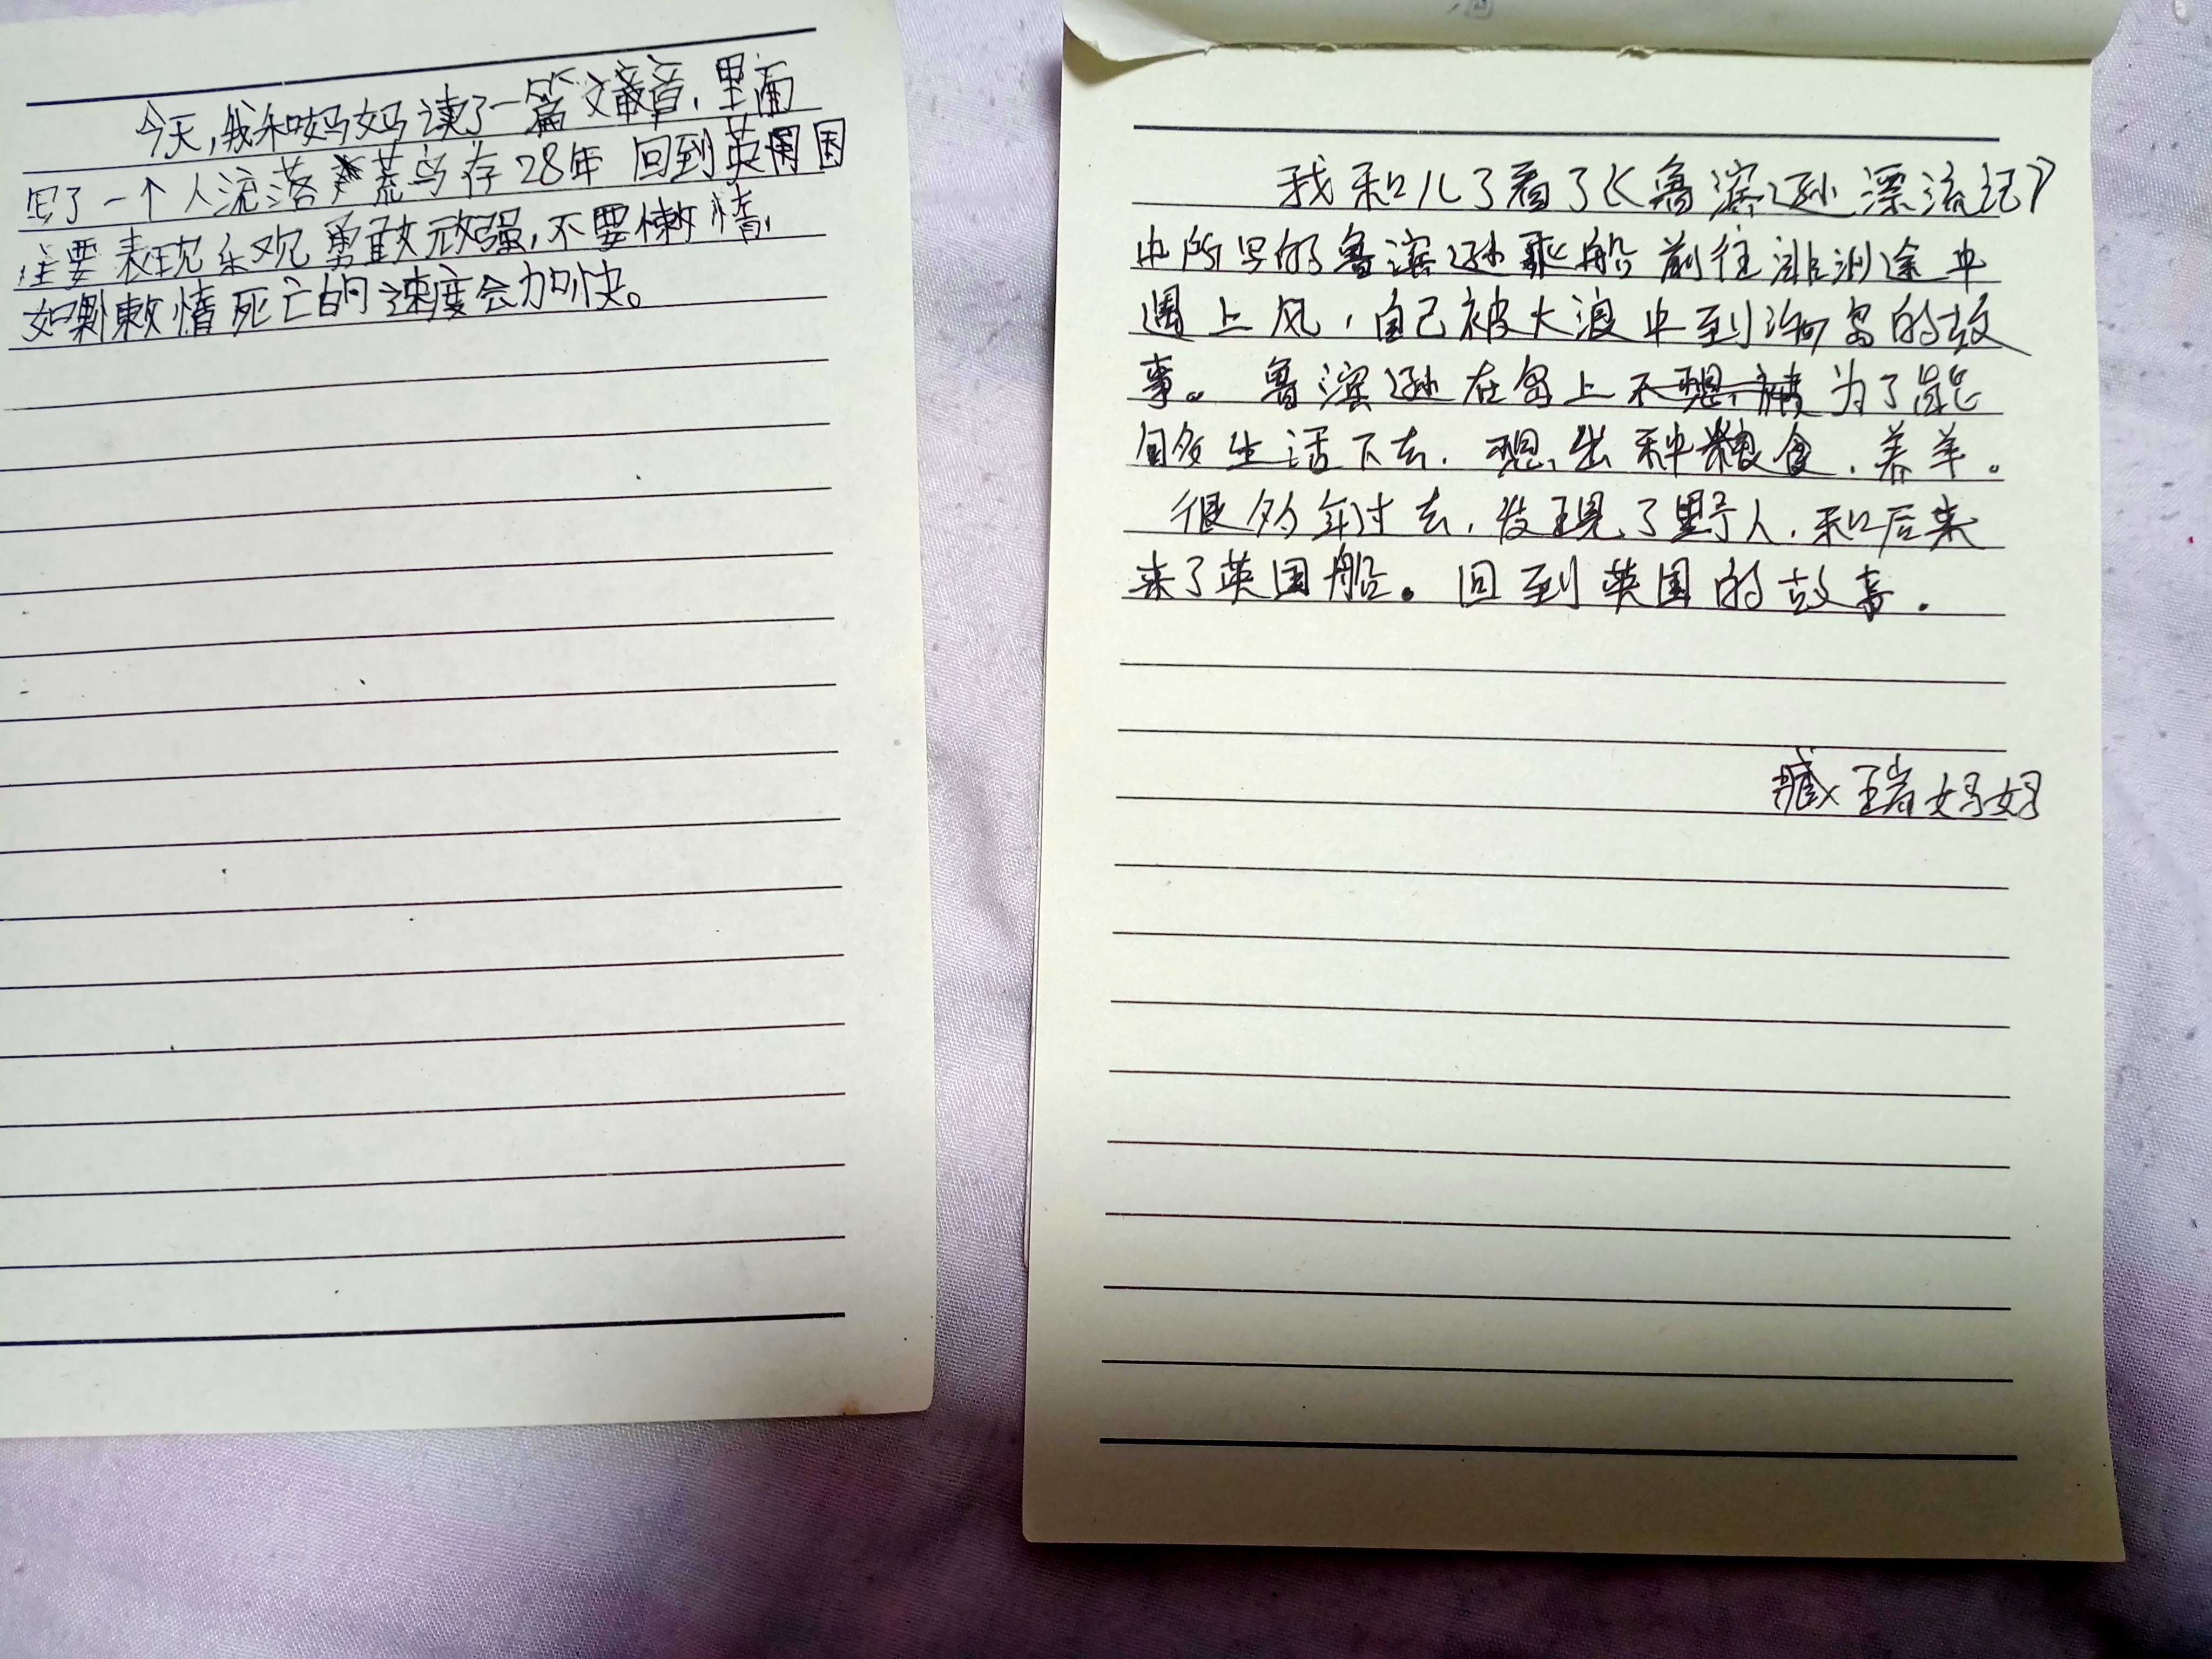 今天,我和妈妈读了一篇文章,里面
写了一个人流落荒岛存28年 回到英国
主要表现乐观勇敢顽强,不要懒惰,
如果懒惰死亡的速度会加快。
我和儿子看了《鲁滨逊漂流记》
中所写的鲁滨逊乘船前往非洲途中
遇上风,自己被大浪冲到海岛的故
事。鲁滨逊在岛上为了能
够生活下去,想出种粮食,养羊。
很多年过去,发现了野人,和后来
来了英国船。回到英国的故事.
臧瑞妈妈